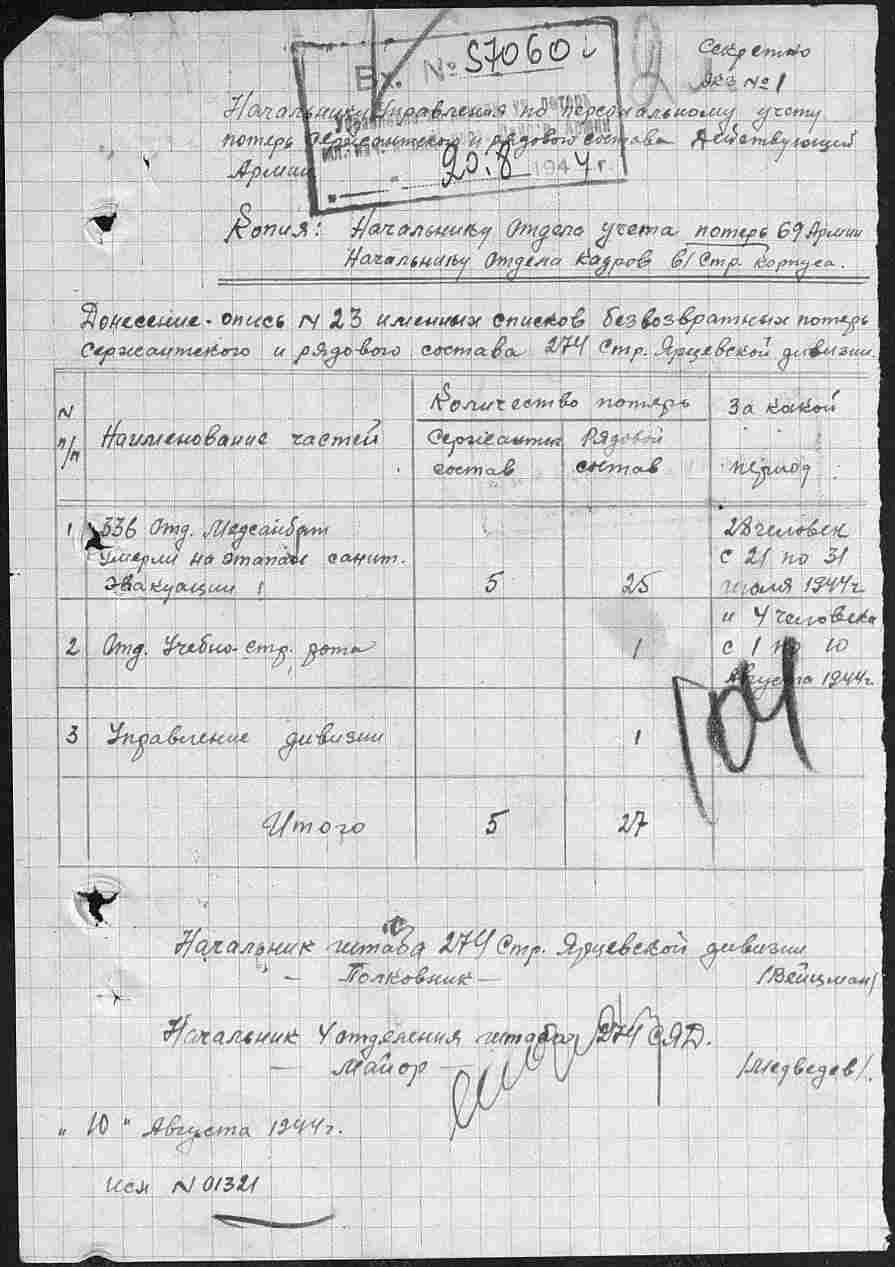 Секретно
Экз № 1
Вх. № 57060
20.8 1944 г.
Начальнику Управления по персональному учету
потерь сержантского и рядового состава Действующей
Армии
Копия: Начальнику Отдела учета потерь 69 Армии
Начальнику Отдела кадров 61 Стр. корпуса.
Донесение-опись N 23 именных списков безвозвратных потерь
сержантского и рядового состава 274 Стр. Ярцевской дивизии.
N п/п
Наименование частей
Количество потерь
Сержантск состав
Рядовой состав
За какой период
1 336 Отд. Медсанбат
Умерли на этапах санит.
Эвакуации 5 25
28 человек
с 21 по 31
июля 1944г
и 4 человека
с 1 по 10
Августа 1944г.
2 Отд. Учебно-стр. рота 1
3 Управление дивизии 1
Итого 5 27
Начальник штаба 274 Стр. Ярцевской дивизии
— Полковник — /Вейцман/
Начальник 4 отделения штаба 274 СЯД.
— Майор — /Медведев/.
„ 10 " Августа 1944г.
Исх N 01321